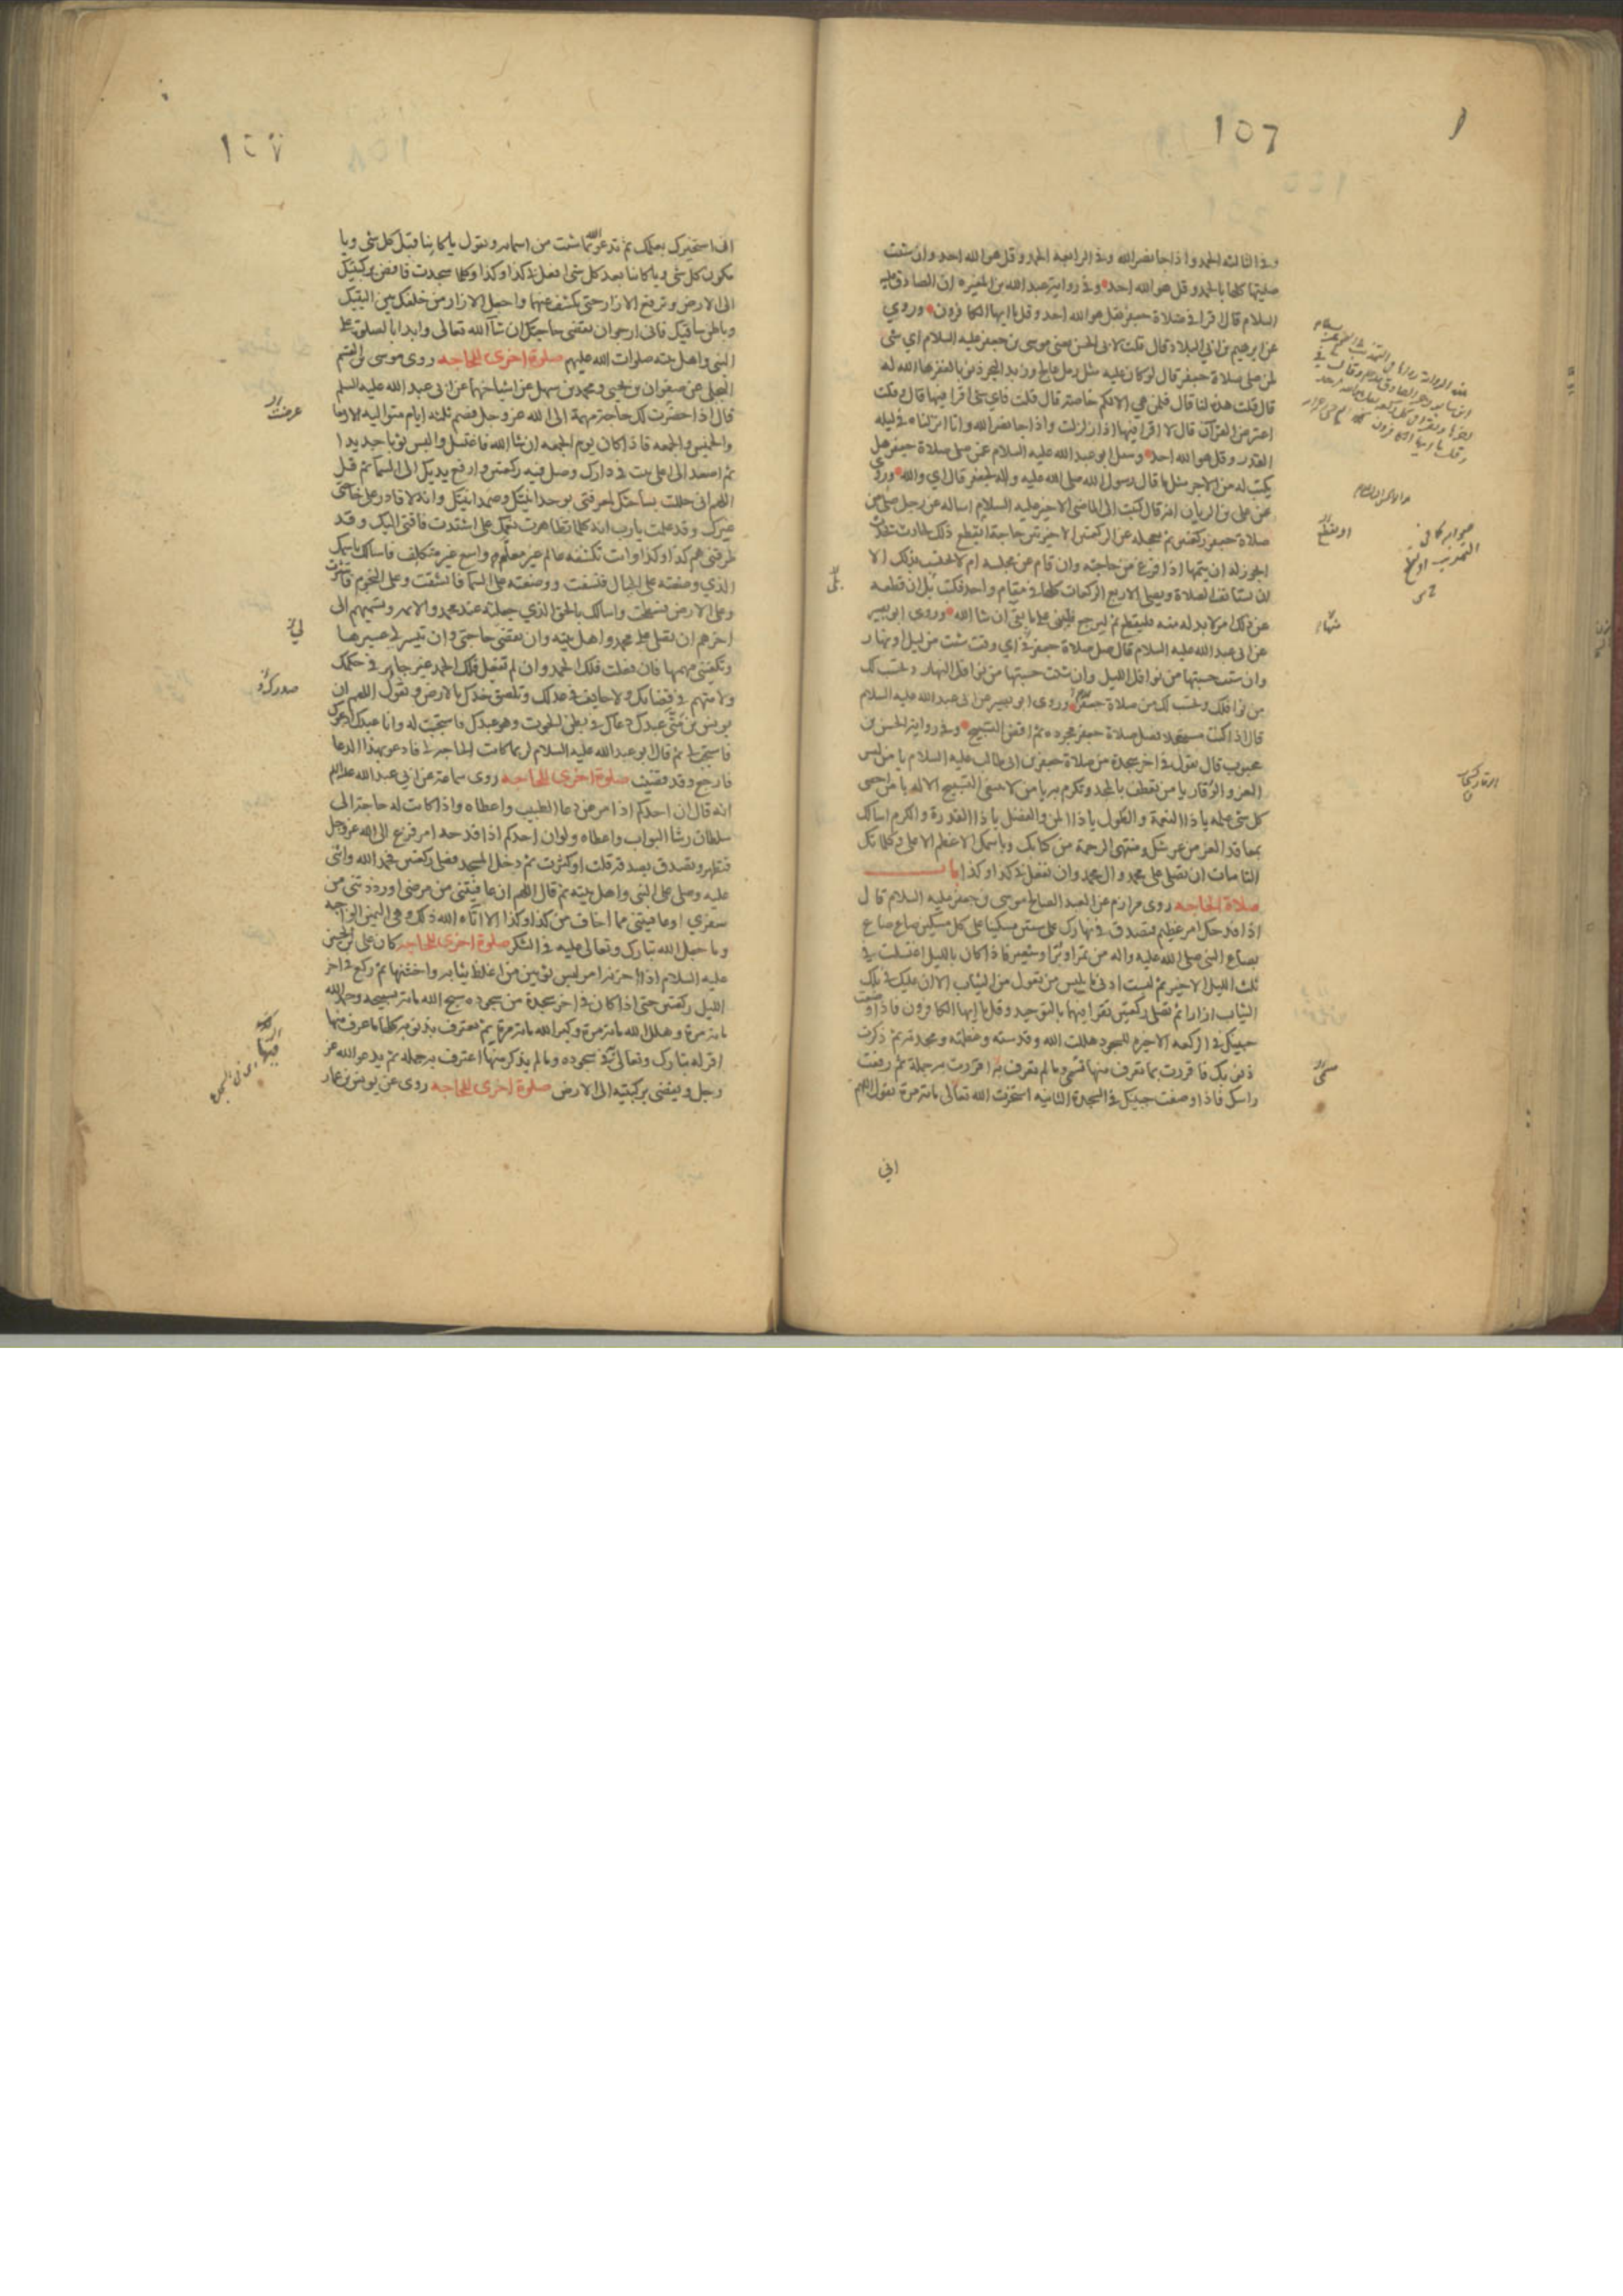 ١٥٦
وفي الثالثة الحمد واذا جا نصر الله وفي الرابعة الحمد وقل هو الله احد وان شئت
صليتها كلها بالحمد وقل هو الله احد وفي رواية عبد الله بن المغيره ان الصادق عليه
السلام قال اقرا في صلاة جعفر قل هو الله احد وقل يا ايها الكافرون وروي
عن ابرهيم بن ابي البلاد قال قلت لابي الحسن يعني موسى بن جعفر عليه السلام اي شى
لمن صلى صلاة جعفر قال لو كان عليه مثل رمل عالج وزبد البحر ذنوبا لغفرها الله له
قال قلت هذه لنا قال فلمن هي الا لكم خاصة قال قلت فاي شى اقرا فيها قال وقلت
اعترض القرآن قال لا اقرا فيها اذا زلزلت واذا جا نصر الله وانا انزلناه في ليلة
القدر وقل هو الله احد وسئل ابو عبد الله عليه السلام عمن صلى صلاة جعفر هل
يكتب له من الاجر مثل ما قال رسول الله صلى الله عليه واله لجعفر قال اي والله وروي
عن على بن الريان انه قال كتبت الى الماضى الاخير عليه السلام اساله عن رجل صلى من
صلاة جعفر ركعتين ثم تعجله عن الركعتين الاخيرتين حاجة ايقطع ذلك لحادث يحدث
ايجوز له ان يتمها اذا فرغ من حاجته وان قام عن مجلسه ام لا يحتسب بذلك الا
ان يستانف الصلاة ويصلى الاربع الركعات كلها في مقام واحد فكتب بل ان قطعه
عن ذلك امر لا بد له منه فليقطع ثم ليرجع فليبن على ما بقى ان شا الله وروى ابو بصير
عن ابى عبد الله عليه السلام قال صل صلاة جعفر في اي وقت شئت من ليل او نهار
وان شئت حسبتها من نوافل الليل وان شئت حسبتها من نوافل النهار وتحسب لك
من نوافلك وتحتسب لك من صلاة جعفر وروى ابو بصير عن ابى عبد الله عليه السلام
قال اذا كنت مستعجلا فصل صلاة جعفر مجرده ثم اقض التسبيح وفي رواية الحسن بن
محبوب قال تقول في اخر سجدة من صلاة جعفر بن ابى طالب عليه السلام يا من لبس
العز والوقار يا من تعطف بالمجد وتكرم به يا من لا ينبغى التسبيح الا له يا من احصى
كل شى علمه يا ذا النعمة والطول يا ذا المن والفضل يا ذا القدرة والكرم اسالك
بمعاقد العز من عرشك ومنتهى الرحمة من كتابك وباسمك الاعظم الاعلى وكلماتك
التامات ان تصلى على محمد وال محمد وان تفعل بى كذا وكذا باب
صلاة الحاجه روى مرازم عن العبد الصالح موسى بن جعفر عليه السلام قال
اذا فدحك امر عظيم فتصدق في نهارك على ستين مسكينا على كل مسكين صاع صاع
بصاع النبى صلى الله عليه واله من تمر او بر او شعير فاذا كان بالليل اغتسلت في
ثلث الليل الاخير ثم لبست ادنى ما يلبس من تعول من الثياب الا ان عليك في تلك
الثياب ازارا ثم تصلى ركعتين تقرا فيهما بالتوحيد وقل يا ايها الكافرون فاذا وضعت
جبينك في الركعة الاخيرة للسجود هللت الله وقدسته وعظمته ومجدته ثم ذكرت
ذنوبك فاقررت بما تعرف منها تسمى وما لم تعرف به اقررت به جملة ثم رفعت
راسك فاذا وضعت جبينك في السجدة الثانيه استخرت الله تعالى مائة مرة تقول اللهم
اني
او يقطع
ستى
١٥٧
انى استخيرك بعلمك ثم تدعو الله بما شئت من اسمائه وتقول يا كائنا قبل كل شى ويا
مكون كل شى ويا كائنا بعد كل شى افعل بى كذا وكذا وكلما سجدت فافض بركبتيك
الى الارض وترفع الازار حتى تكشف عنهما واجعل الازار من خلفك بين اليتيك
وباطن ساقيك فانى ارجو ان تقضى حاجتك ان شآ الله تعالى وابدا بالصلوة على
النبى واهل بيته صلوات الله عليهم صلوة اخرى للحاجه روى موسى بن القسم
البجلى عن صفوان بن يحيى ومحمد بن سهل عن اشياخهما عن ابى عبد الله عليه السلم
قال اذا حضرت لك حاجة مهمة الى الله عز وجل فصم ثلثة ايام متواليه الاربعا
والخميس والجمعه فاذا كان يوم الجمعه ان شا الله فاغتسل والبس ثوبا جديدا
ثم اصعد الى اعلى بيت في دارك وصل فيه ركعتين وارفع يديك الى السما ثم قل
اللهم انى حللت بساحتك لمعرفتى بوحدانيتك وصمدانيتك وانه لا قادر على حاجتى
غيرك وقد علمت يا رب انه كلما تظاهرت نعمتك على اشتدت فاقتى اليك وقد
طرقنى هم كذا وكذا وانت تكشفه عالم غير معلم واسع غير متكلف فاسالك باسمك
الذي وضعته على الجبال فنسفت ووضعته على السما فانشقت وعلى النجوم فانتثرت
وعلى الارض فسطحت واسالك بالحق الذي جعلته عند محمد والائمه وتسميهم الى
اخرهم ان تصلى على محمد واهل بيته وان تقضى حاجتى وان تيسر لى عسيرها
وتكفينى مهمها فان فعلت فلك الحمد وان لم تفعل فلك الحمد غير جاير في حكمك
ولا متهم في قضائك ولا حايف في عدلك وتلصق خدك بالارض وتقول اللهم ان
يونس بن متى عبدك دعاك في بطن الحوت وهو عبدك فاستجبت له وانا عبدك ادعوك
فاستجب لى ثم قال ابو عبد الله عليه السلام لربما كانت الحاجة لى فادعو بهذا الدعا
فارجع وقد قضيت صلوة اخرى للحاجه روى سماعة عن ابى عبد الله عليه السلم
انه قال ان احدكم اذا مرض دعا الطبيب واعطاه واذا كانت له حاجة الى
سلطان رشا البواب واعطاه ولو ان احدكم اذا فدحه امر فزع الى الله عز وجل
فتطهر وتصدق بصدقة قلت او كثرت ثم دخل المسجد فصلى ركعتين فحمد الله واثنى
عليه وصلى على النبى واهل بيته ثم قال اللهم ان عافيتنى من مرضى او رددتنى من
سفري او عافيتنى مما اخاف من كذا وكذا الا اتاه الله ذلك وهى اليمين الواجبه
وما جعل الله تبارك وتعالى عليه في الشكر صلوة اخرى للحاجه كان على بن الحسين
عليه السلام اذا حزنه امر لبس ثوبين من اغلظ ثيابه واخشنها ثم ركع في اخر
الليل ركعتين حتى اذا كان في اخر سجدة من سجوده سبح الله مائة تسبيحه وحمد الله
مائة مرة وهلل الله مائة مرة وكبر الله مائة مرة ثم يعترف بذنوبه كلها ما عرف منها
اقر له تبارك وتعالى به في سجوده وما لم يذكر منها اعترف به جملة ثم يدعو الله عز
وجل ويفضى بركبتيه الى الارض صلوة اخرى للحاجه روى عن يونس بن عمار
عرضت
لى